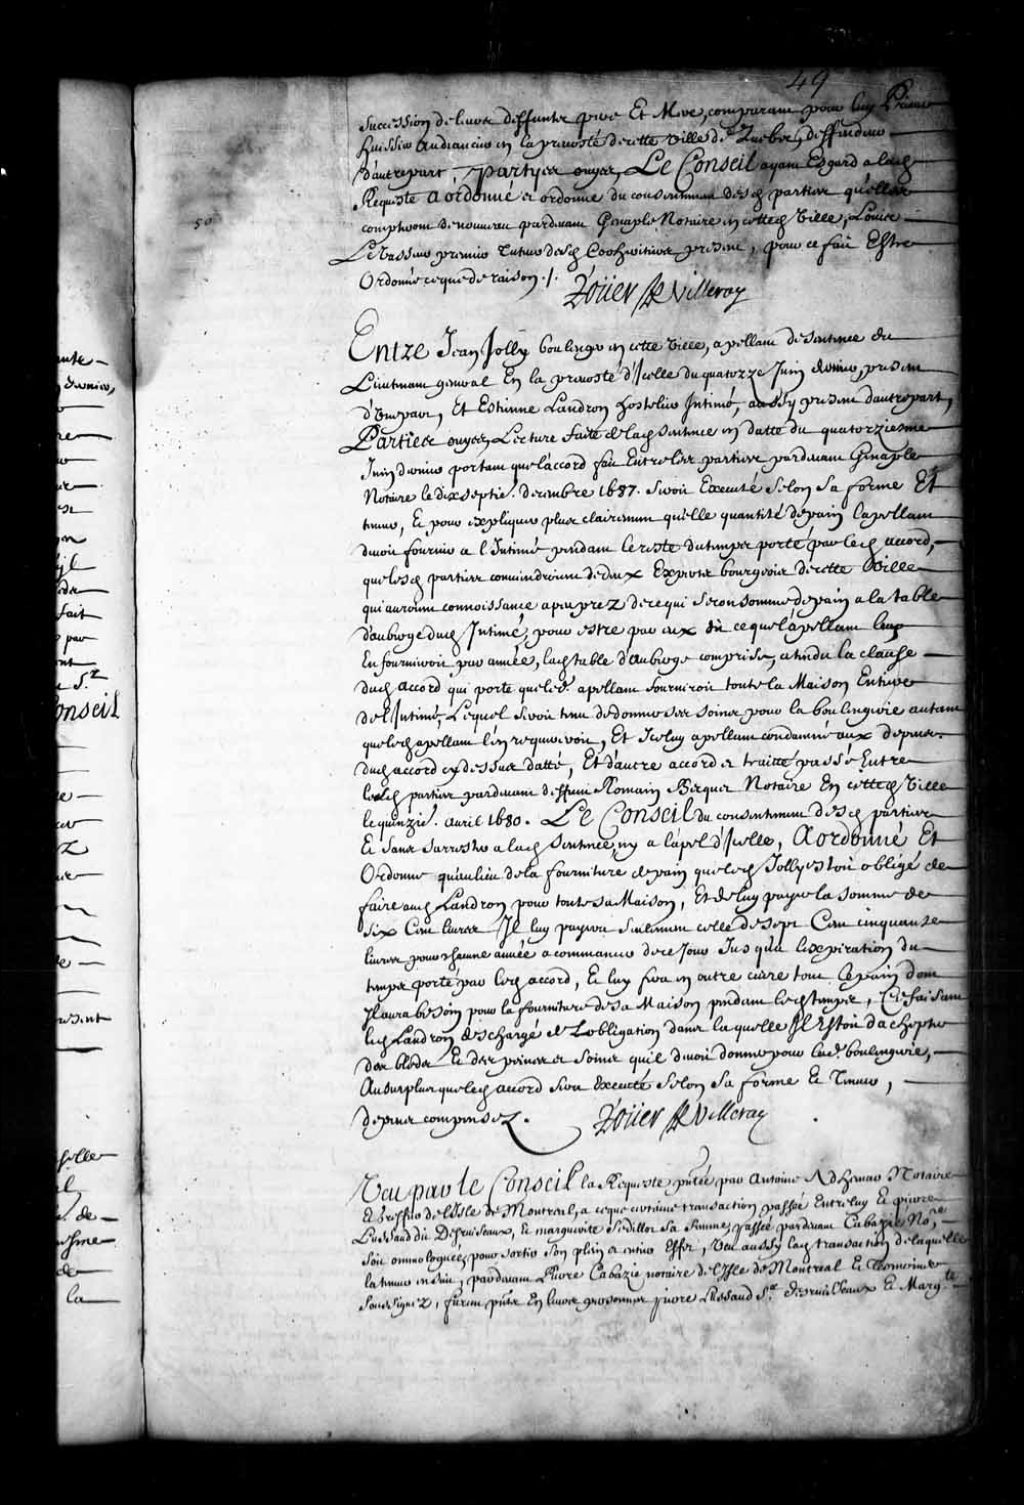 49
succession de leurs deffunts pere Et Mere, comparant pour luy
huissier Audiancier en la prevosté de cette ville de Quebec, deffendeur
d'autre part. Partyes ouyes, Le Conseil ayant Esgard a lad.
Requeste a ordonné et ordonne du consentement desd. partyes qu'elles
compteront de nouveau pardevant Genaple Notaire en cetted. Ville, Louise
Levasseur premier tuteur desd. present, pour ce fait Estre
Ordonné ce que de raison ./.
50
Roüer de Villeray
Entre Jean Jolly boulenger en cette ville, apellant de sentence du
Lieutenant general En la prevosté d'Icelle du quatorze Juin dernier, present
d'Une part, Et Estienne Landron hostelier Intimé, aussy present d'autre part,
Partiees ouyes, Lecture faite de lad. sentence en datte du quatorziesme
Juin dernier portant que l'accord fait Entre les partyes pardevant Genaple
Notaire le dix septie. decembre 1687. seroit Executé selon sa forme Et
teneur, Et pour expliquer plus clairement qu'elle quantité de pain l'apellant
devoit fournir a l'Intimé pendant le reste du temps porté par led. accord,
que lesd. partyes conviendroient de deux Experts bourgeois de cette Ville
qui auroient connoissance a peu prez de ce qui se consomme de pain a la table
d'auberge dud. Intimé, pour estre par eux dit ce que l'apellant luy
En fourniroit par année, lad. table d'auberge comprise, attendu la clause
dud. accord qui porte que led. apellant fourniroit toute la Maison Entiere
de l'Intimé, Lequel seroit tenu de donner ses soins pour la boulengerie autant
que led. apellant l'en requereroit, Et Iceluy apellant condamné aux depens.
dud. accord cy dessus datté, Et d'autre accord et traitté passé Entre
lesd. partyes pardevant deffunt Romain Becquet Notaire En cetted. Ville
le quinzie. avril 1680. Le Conseil du consentement desd. partyes
Et sans s'arrester a lad. sentence, ny a l'apel d'Icelle, A ordonné Et
Ordonne qu'au lieu de la fourniture de pain que led. Jolly estoit obligé de
faire aud. Landron pour toute sa Maison, Et de luy payer la somme de
six Cens livres Il luy payera seulement celle de sept Cens cinquante
livres pour chacune année a commencer de ce Jour Jusqu'a l'expiration du
temps porté par led. accord, Et luy fera en outre cuire tout le pain dont
Il aura besoin pour la fourniture de sa Maison pendant led. temps, Ce faisant
led. Landron deschargé de l'obligation dans laquelle Il Estoit d'achepter
des bleds Et des peines et soins qu'il devoit donner pour lad. boulengerie,
Au surplus que led. accord sera Executé selon sa forme Et Teneur,
depens compensez.
Roüer de Villeray
Veu par le Conseil la Requeste pntée par Antoine Adhemar Notaire
Et Greffier de l'Isle de Montreal, a ce que certaine transaction passée Entre luy Et pierre
Lussaud dit Desruisseaux, Et marguerite Sedillot sa femme, passée pardevant Cabazié No.re
soit omologuée pour sortir son plein et entier Effet, Veu aussy lad. transaction de laquelle
la teneur ensuit, pardevant Pierre Cabazié notaire de l'Isle de Montreal Et tesmoins
soussignez, furent pnts En leurs personnes pierre Lussaud S.r desruisseaux Et Marg.te